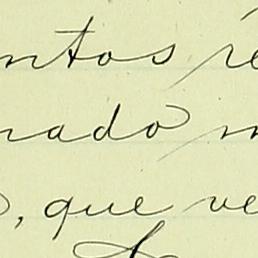 ntos re
nado m
, que ve